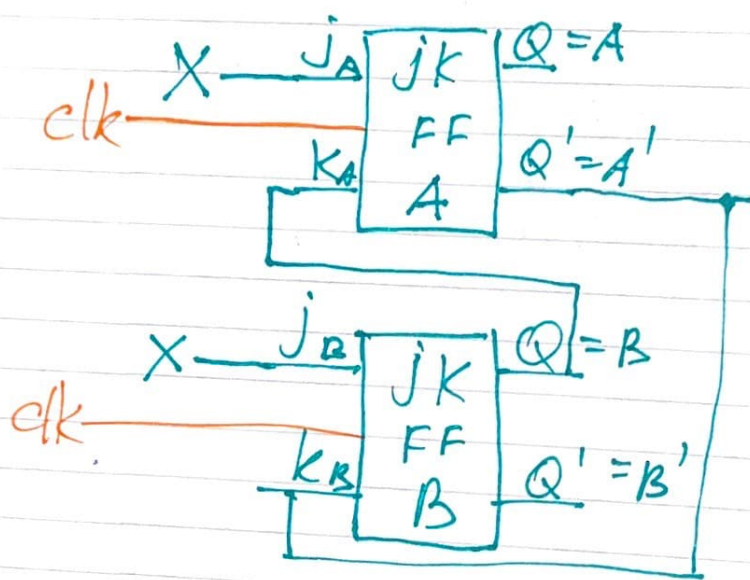 X
jA
jK
Q = A
clk
FF
KA
A
Q' = A'
X
jB
jK
Q = B
clk
FF
KB
B
Q' = B'